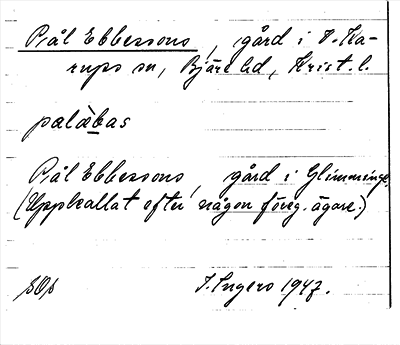 Pål Ebbesons, gård i V. Ka-
rups sn, Bjäre hd, Krist. l.
palàbas
Pål Ebbesons, gård i Glimminge.
(Uppkallat efter någon föreg. ägare.)
I. Ingers 1947.